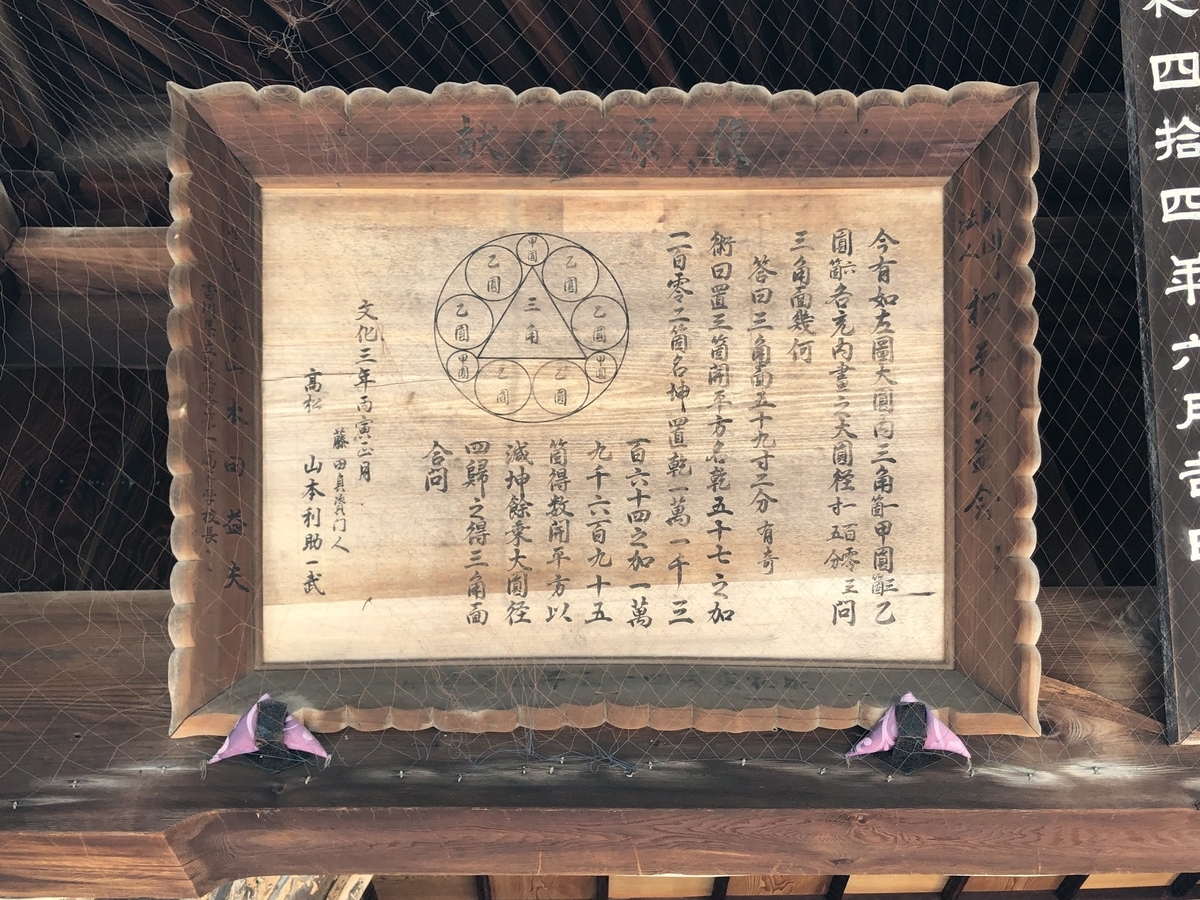 今有如左圖大圓内三角一箇甲圓三箇乙
圓六箇各充内書之大圓径一百零三寸五分問
三角面幾何
答曰三角面五十九寸二分有奇
術曰置三箇開平方名乾五十七之加
二百零二箇名坤置乾一萬一千三
百六十四之加一萬
九千六百九十五
箇得数開平方以
減坤餘乗大圓径
四歸之得三角面
合問
甲圓
乙圓
乙圓
乙圓
乙圓
三角
甲圓
甲圓
乙圓
乙圓
文化三年丙寅正月
藤田貞資門人
高松 山本利助一武
山本田益夫
四拾四年六月吉日